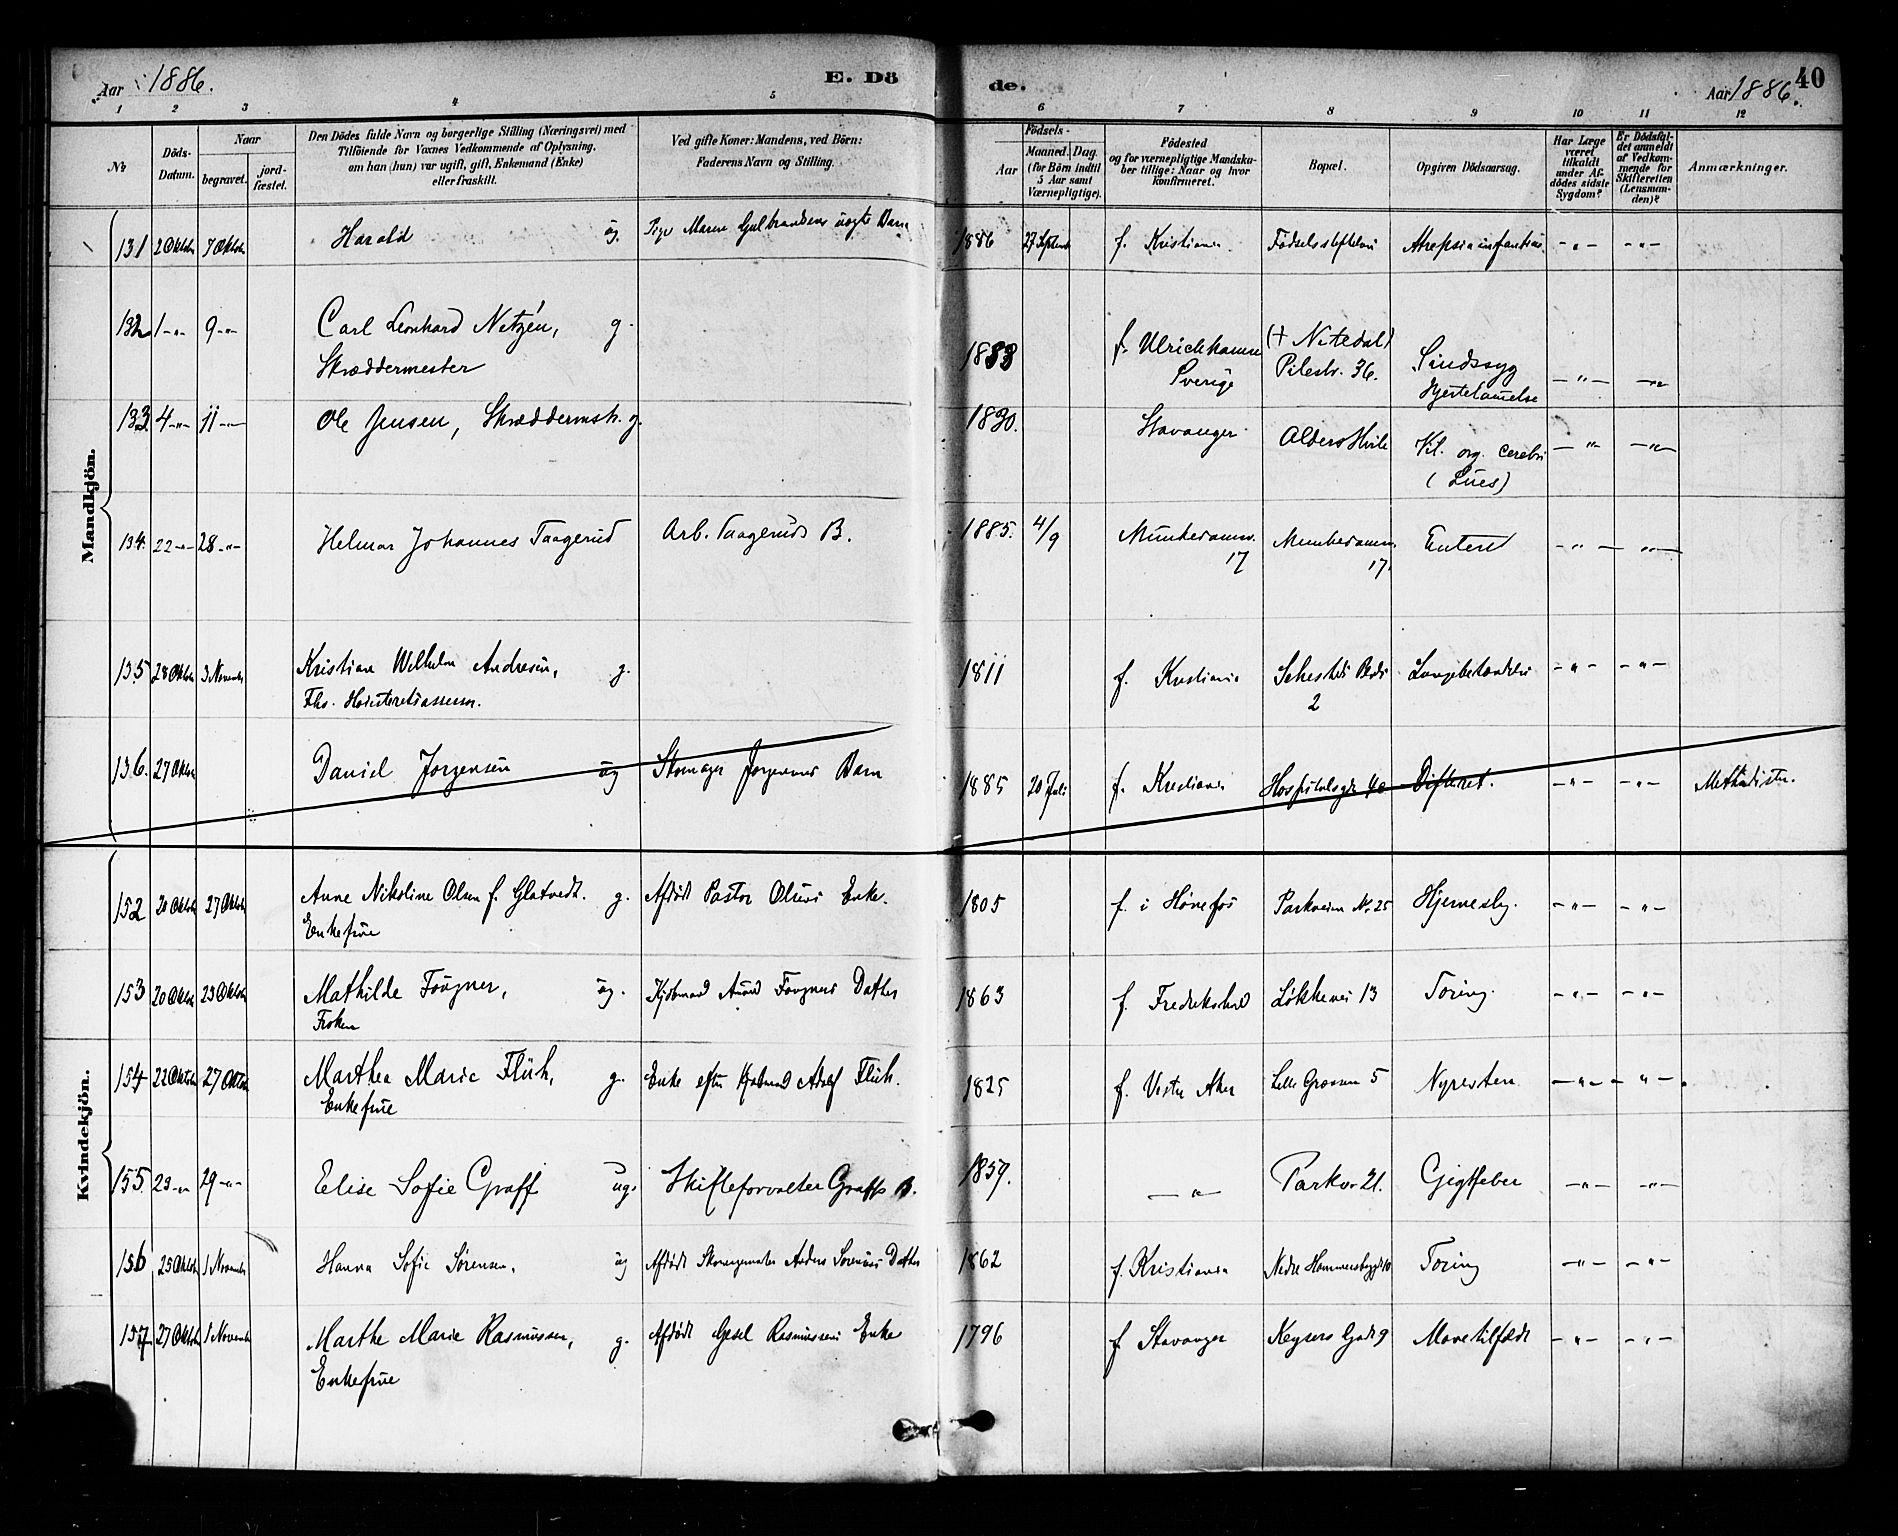 Aar 1886.
E. Dö
de.
Aar 1886.
40
1 2 3 4 5 6 7 8 9 10 11 12
No.
Döds-Datum.
Naar
begravet.
jord-fæstet.
Den Dödes fulde Navn og borgerlige Stilling (Næringsvei) med
Tilföiende for Voxnes Vedkommende af Oplysning,
om han (hun) var ugift, gift, Enkemand (Enke)
eller fraskilt.
Ved gifte Koner: Mandens, ved Börn:
Faderens Navn og Stilling.
Födsels-
Aar
Maaned. Dag.
(for Börn indtil
5 Aar samt
Værnepligtige).
Födested
og for værnepligtige Mandska-
ber tillige: Naar og hvor
konfirmeret.
Bopæl.
Opgiven Dödsaarsag.
Har Læge
været
tilkaldt
under Af-
dödes sidste
Sygdom?
Er Dödsfal-
det anmeldt
af Vedkom-
mende for
Skifteretten
(Lensman-
den)?
Anmærkninger.
Mandkjön.
131 2 Oktob 7 Oktob Harald ug. Pige Maren Gulbrandsens uægte Barn 1886 27 Septemb f. Kristiania Fødselsstiftelsen Atrepsia infantium -"- -"-
132 1-"- 9-"- Carl Leonhard Netzén, g. 1833 f. Ulrichhamn (+ Nitedal) Sindssyg -"- -"-
Skræddermester Sverige Pilestr. 36. Hjertelamelse
133. 4-"- 11-"- Ole Jensen, Skræddermstr. g. 1830. Stavanger Alders Hvile Vit. org. cerebri -"- -"-
(Lues)
134. 22-"- 28-"- Helmar Johannes Taagerud Arb. Taageruds B. 1885. 4/9 Munkedamsv. 17 Munkedamsv. 17. Enterit -"- -"-
135 28 Oktob 3 Novemb Kristian Wilhelm Andresen, g. 1811 f. Kristiania Sehesteds Plads 2 Lungebetændelse -"- -"-
Fhv. Høiesteretsassessor.
136. 27 Oktob Daniel Jorgensen ug Skomager Jorgensens Barn 1885 20 Juli f. Kristiania Hospitalsgd 40 Difterit. -"- -"- Methodister.
Kvindekjön.
152 20 Oktob 27 Oktob Anne Nikoline Olsen f. Glatvedt. g. Afdøde Pastor Olsens Enke. 1805 f. i Hønefos Parkveien No 25 Hjernesbg. -"- -"-
Enkefrue
153 20 Oktob 23 Oktob Mathilde Fougner, ug. Kjøbmand Amund Fougners Datter 1863 f. Fredrikshald Løkkevei 13 Tæring. -"- -"-
Frøken
154 22 Oktob 27 Oktob Marthea Marie Flüh, g. Enke efter Kjøbmand Adolf Flüh. 1825 f. Vestre Aker Lille Grænsen 5 Nyresten -"- -"-
Enkefrue
155. 23-"- 29-"- Elise Sofie Graff ug. Skifteforvalter Graffs B. 1859. -"- Parkv. 21. Gigtfeber -"- -"-
156 25 Oktob 1 Novemb Hanna Sofie Sørensen. ug Afdøde Skomagermester Anders Sørensens Datter 1862 f. Kristiania Nedre Hammersbggd 10 Tæring -"- -"-
157 27 Oktob 1 Novemb Marthe Marie Rasmussen, g. Afdøde Gesel Rasmussens Enke 1796 f Stavanger Keysers Gade 9 Mavetilfælde -"- -"-
Enkefrue